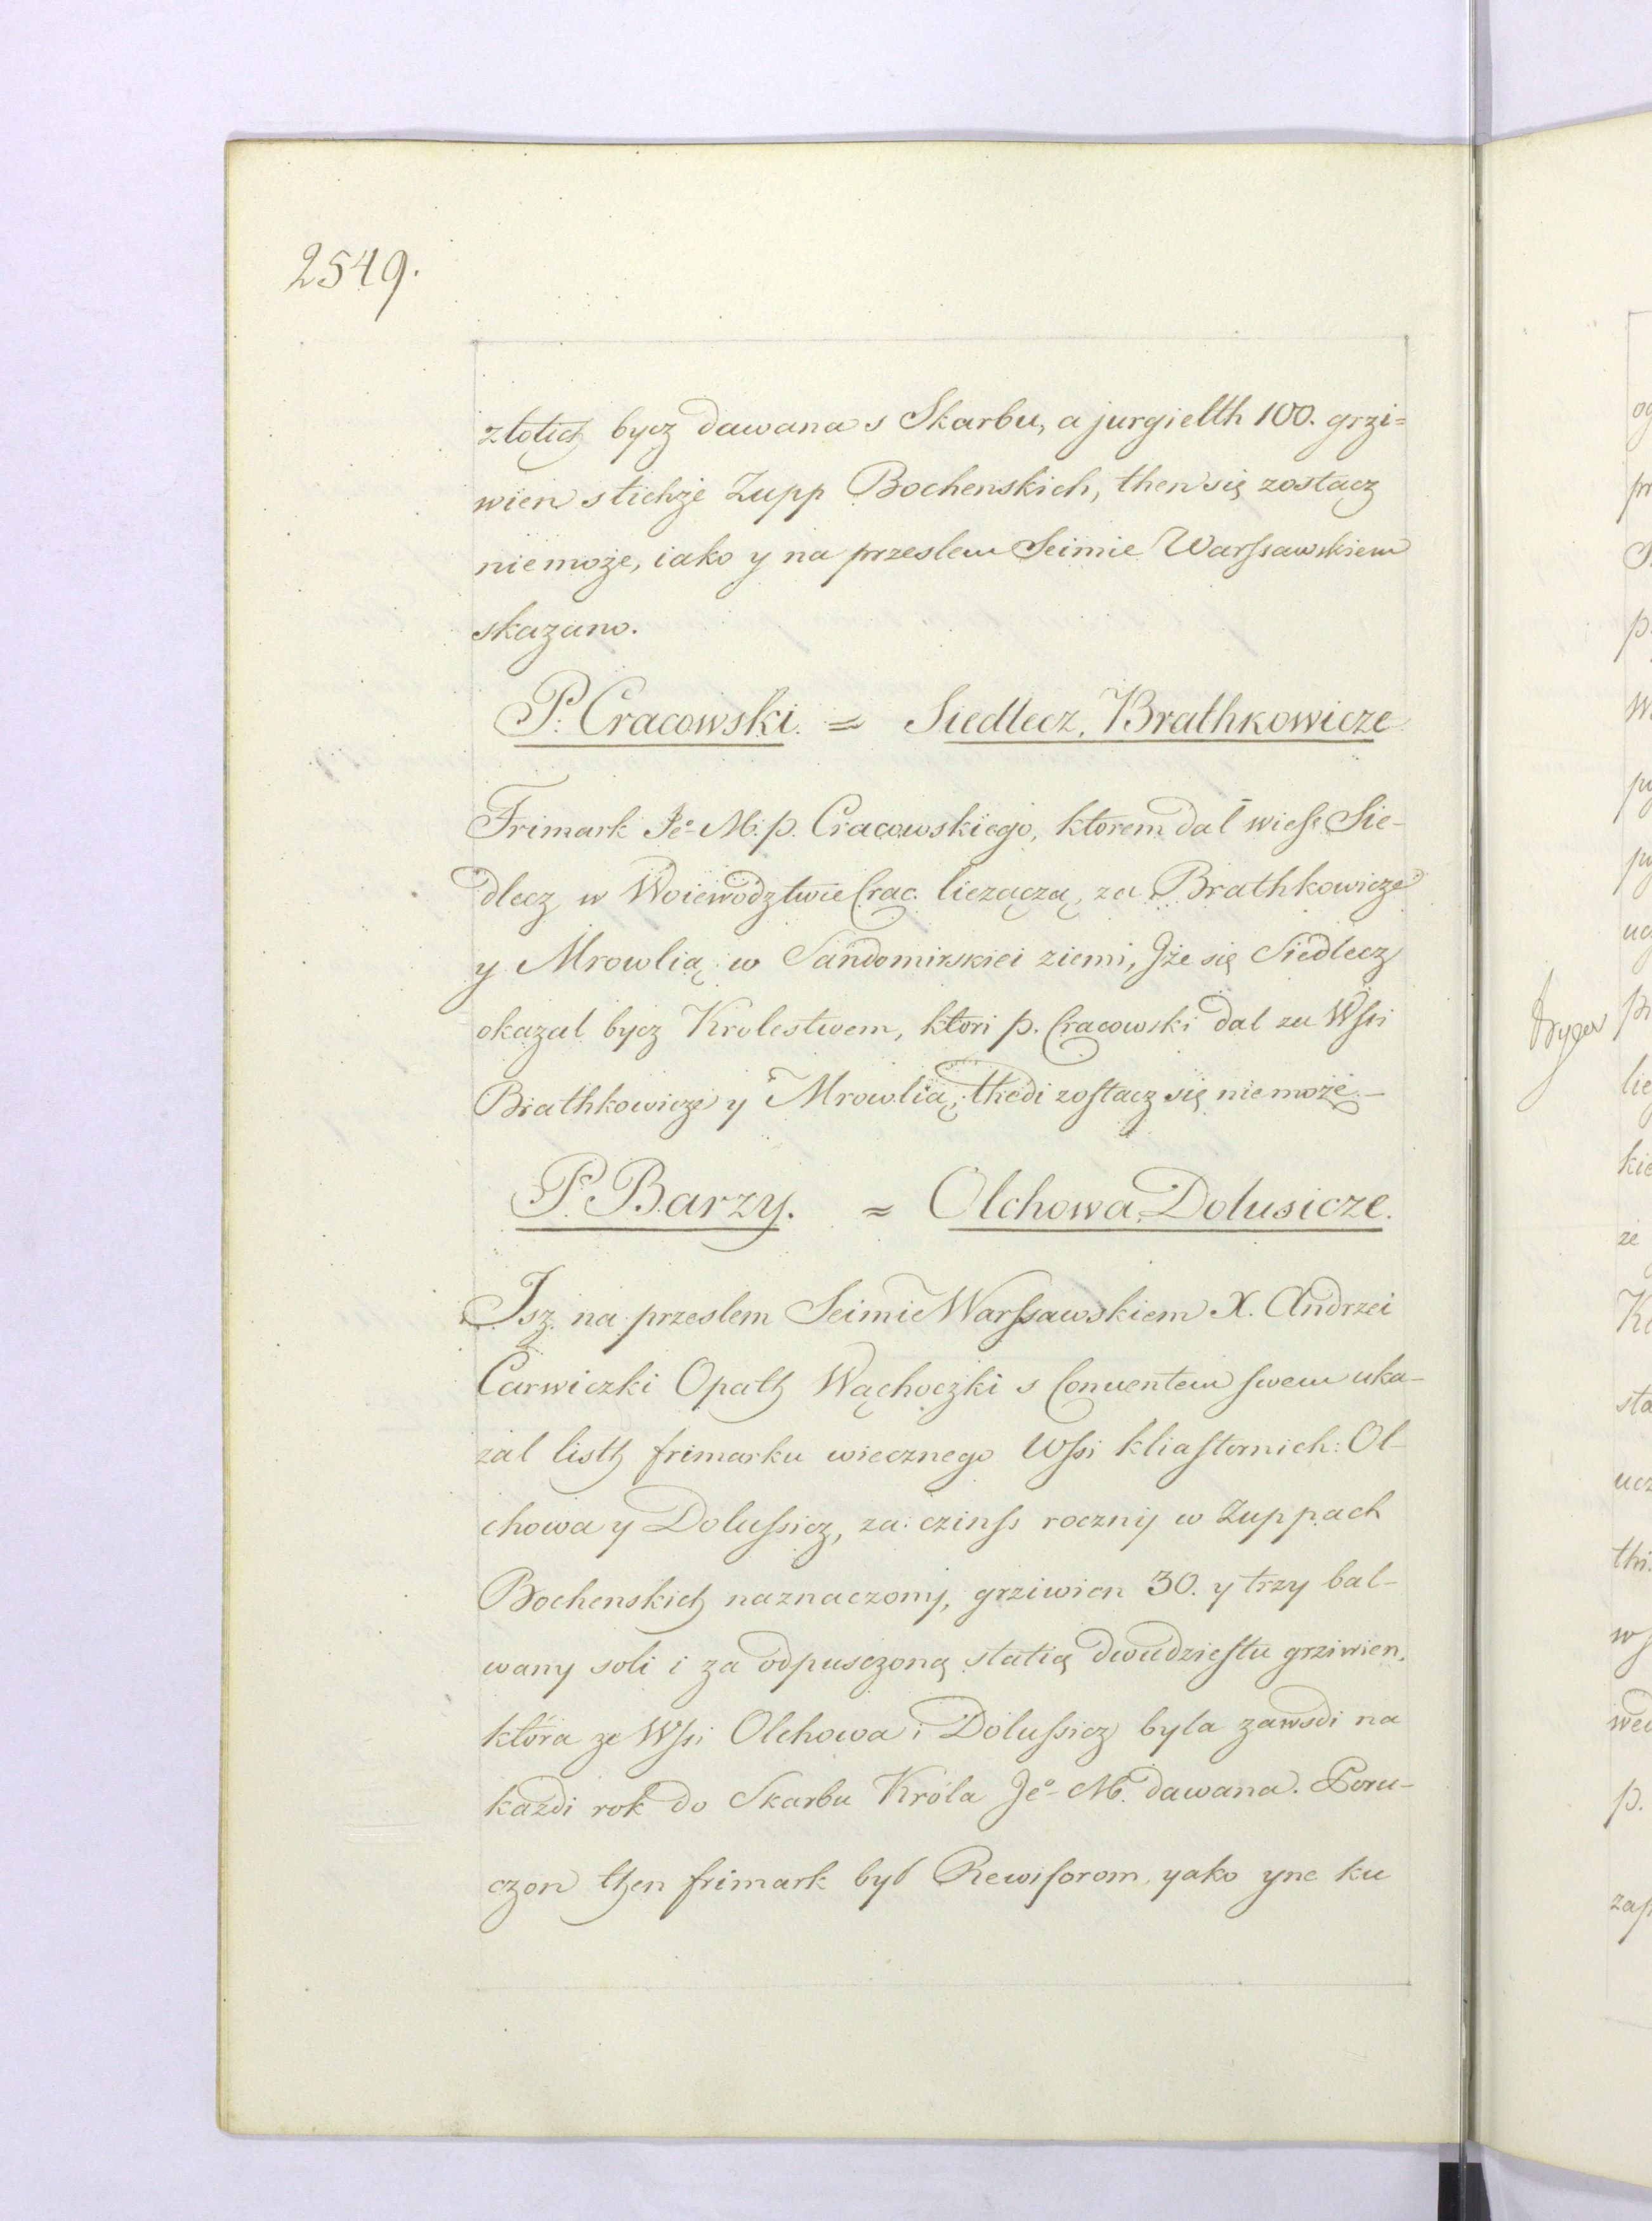 2549.
złotich bycz dawana s Skarbu, a jurgielth 100. grzi=
wien s tichże Zupp Bochenskich, then się zostacz
niemoże, iako y na przeslem Seimie Warssawskiem
skazano.
P. Cracowski. = Siedlecz, Brathkowicze
Frimark Jeo M. p. Cracowskiego, ktorem dał wiess Sie-
dlecz w Woiewodztwie Crac. liezączą, za Brathkowicze
y Mrowlią w Sandomirskiei ziemi, Jże się Siedlecz
okazal bycz Krolestwem, ktori p. Cracowski dal za Wssi
Brathkowicze y Mrowlią, thedi zostacz się niemoże. -
P. Barzy. = Olchowa, Dolusicze.
Jsz na przeslem Seimie Warssawskiem X. Andrzei
Carwiczki Opath Wąchoczki s Conuentem swem uka-
zal listh frimarku wiecznego Wssi kliasztornich: Ol-
chowa y Dolussicz, za czinss rocznij w Zuppach
Bochenskich naznaczonij, grziwien 30. y trzy bal-
wany soli i za odpusczoną statią dwudziestu grziwien,
która ze Wssi Olchowa i Dolussicz byla zawsdi na
każdi rok do Skarbu Króla Jeo M. dawana. Poru-
czon then frimark był Rewisorom, yako yne ku